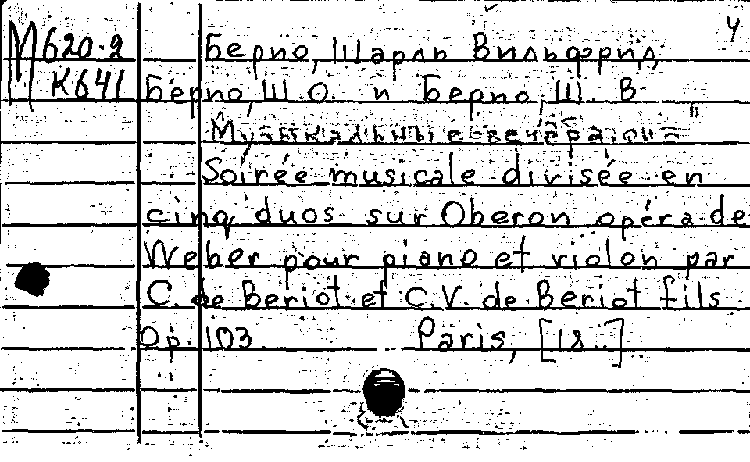 4
М620.2 Берио, Шарль Вильфрид,
К641 Берио, Ш. О. и Берио, Ш. В.
Музыкальные вечера
Soirée musicale divisée en
cinq duos sur Oberon opéra de
Weber pour piano et violon par
C. de Beriot et C.V. de Beriot fils.
Op. 103. Paris, [18..]